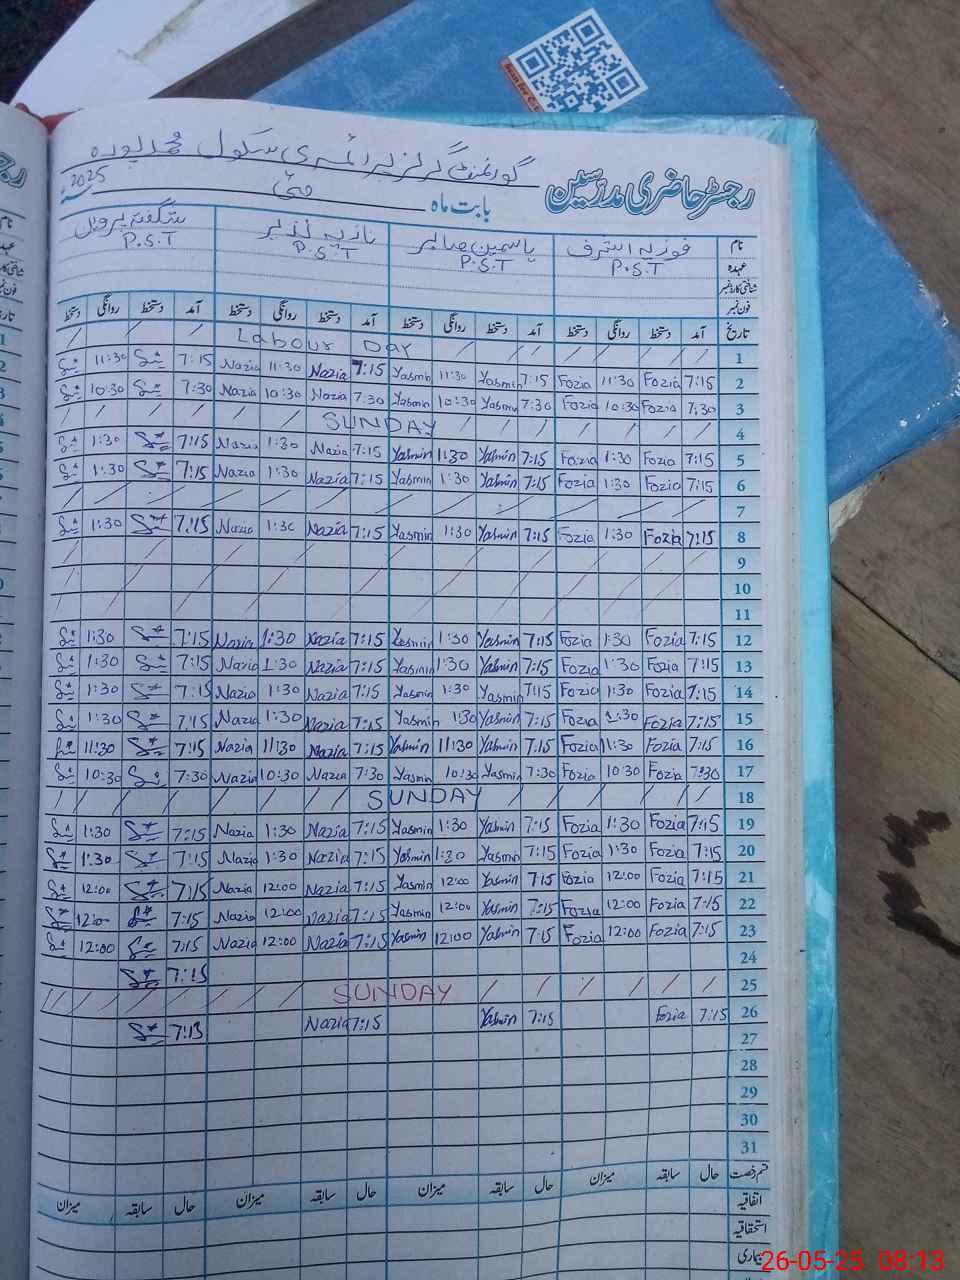 گورنمنٹ گرلز پرائمری سکول محمد پورہ
رجسٹر حاضری مدرسین بابت ماہ مئی سنہ 2025
نام فوزیہ اشرف یاسمین صابر نازیہ نذیر شگفتہ پروین
عہدہ P.S.T P.S.T P.S.T P.S.T
شناختی کارڈ نمبر
فون نمبر
تاریخ آمد دستخط روانگی دستخط آمد دستخط روانگی دستخط آمد دستخط روانگی دستخط آمد دستخط روانگی دستخط
Labour DAY 1
11:30 7:15 Nazia 11:30 Nazia 7:15 Yasmin 11:30 Yasmin 7:15 Fozia 11:30 Fozia 7:15 2
10:30 7:30 Nazia 10:30 Nazia 7:30 Yasmin 10:30 Yasmin 7:30 Fozia 10:30 Fozia 7:30 3
SUNDAY 4
1:30 7:15 Nazia 1:30 Nazia 7:15 Yasmin 1:30 Yasmin 7:15 Fozia 1:30 Fozia 7:15 5
1:30 7:15 Nazia 1:30 Nazia 7:15 Yasmin 1:30 Yasmin 7:15 Fozia 1:30 Fozia 7:15 6
7
1:30 7:15 Nazia 1:30 Nazia 7:15 Yasmin 1:30 Yasmin 7:15 Fozia 1:30 Fozia 7:15 8
9
10
11
1:30 7:15 Nazia 1:30 Nazia 7:15 Yasmin 1:30 Yasmin 7:15 Fozia 1:30 Fozia 7:15 12
1:30 7:15 Nazia 1:30 Nazia 7:15 Yasmin 1:30 Yasmin 7:15 Fozia 1:30 Fozia 7:15 13
1:30 7:15 Nazia 1:30 Nazia 7:15 Yasmin 1:30 Yasmin 7:15 Fozia 1:30 Fozia 7:15 14
1:30 7:15 Nazia 1:30 Nazia 7:15 Yasmin 1:30 Yasmin 7:15 Fozia 1:30 Fozia 7:15 15
11:30 7:15 Nazia 11:30 Nazia 7:15 Yasmin 11:30 Yasmin 7:15 Fozia 11:30 Fozia 7:15 16
10:30 7:30 Nazia 10:30 Nazia 7:30 Yasmin 10:30 Yasmin 7:30 Fozia 10:30 Fozia 7:30 17
SUNDAY 18
1:30 7:15 Nazia 1:30 Nazia 7:15 Yasmin 1:30 Yasmin 7:15 Fozia 1:30 Fozia 7:15 19
1:30 7:15 Nazia 1:30 Nazia 7:15 Yasmin 1:30 Yasmin 7:15 Fozia 1:30 Fozia 7:15 20
12:00 7:15 Nazia 12:00 Nazia 7:15 Yasmin 12:00 Yasmin 7:15 Fozia 12:00 Fozia 7:15 21
12:00 7:15 Nazia 12:00 Nazia 7:15 Yasmin 12:00 Yasmin 7:15 Fozia 12:00 Fozia 7:15 22
12:00 7:15 Nazia 12:00 Nazia 7:15 Yasmin 12:00 Yasmin 7:15 Fozia 12:00 Fozia 7:15 23
7:15 24
SUNDAY 25
7:13 Nazia 7:15 Yasmin 7:15 Fozia 7:15 26
27
28
29
30
31
قسم رخصت حال سابقہ میزان حال سابقہ میزان حال سابقہ میزان حال سابقہ میزان
اتفاقیہ
استحقاقیہ
بیماری
26-05-25 08:13